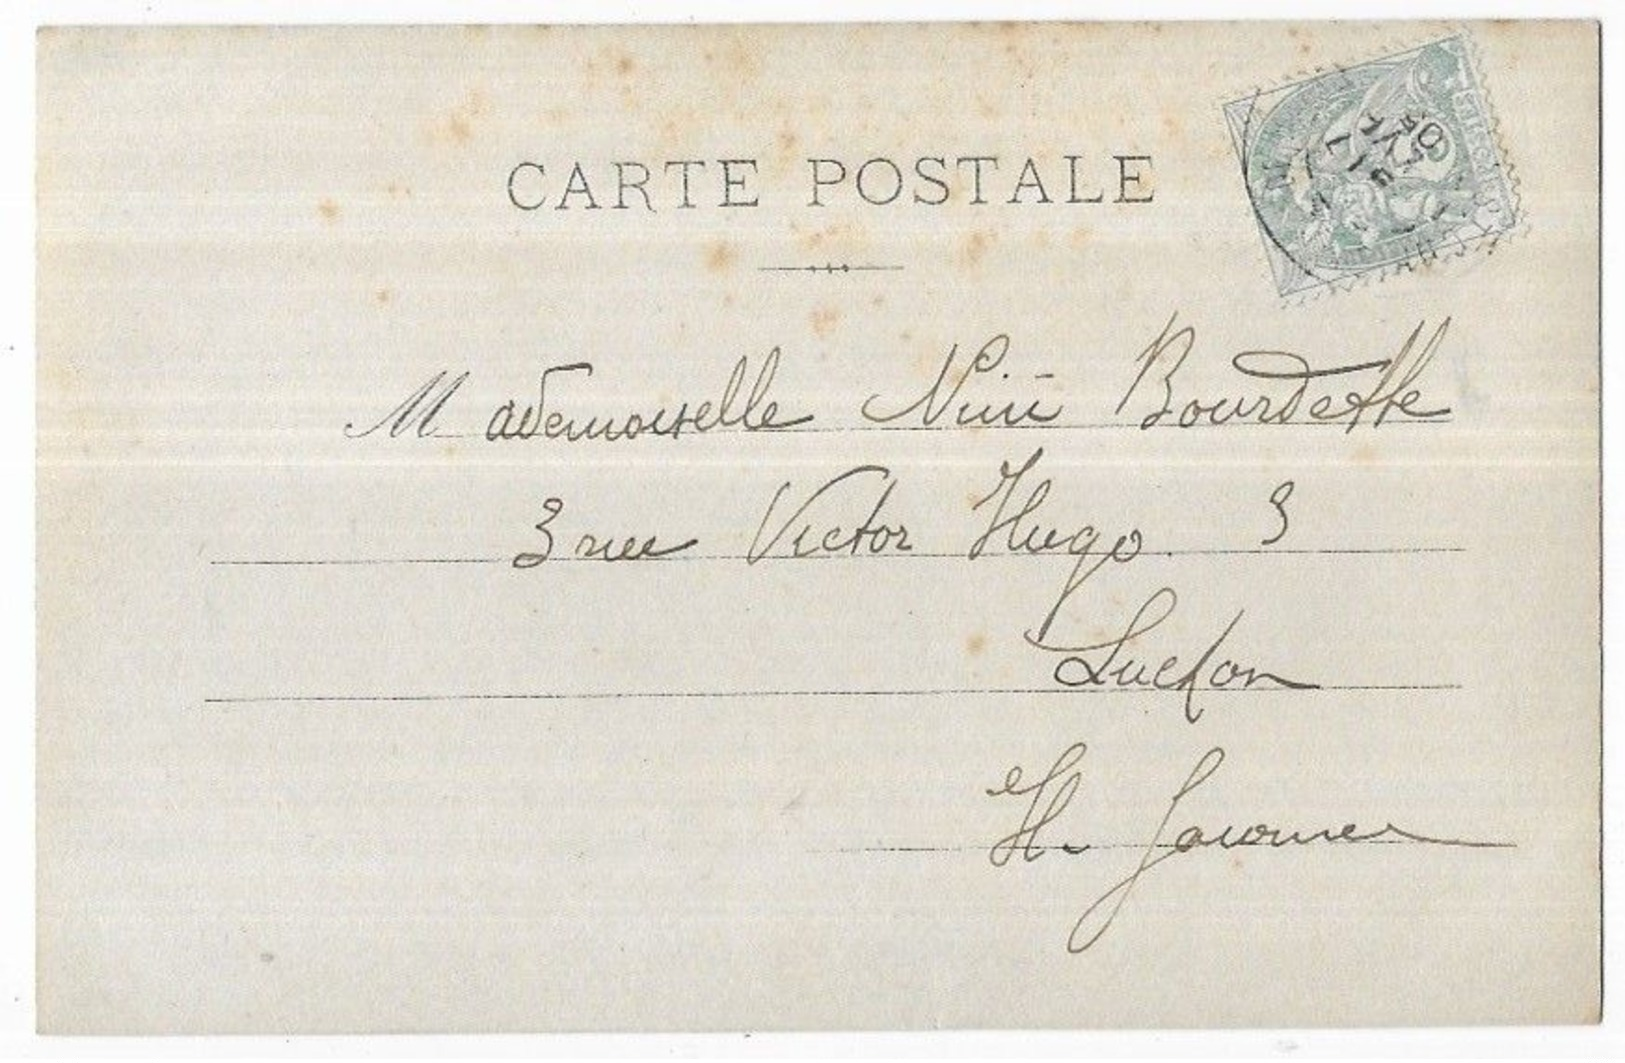 CARTE POSTALE
Mademoiselle Nini Bourdette
3 rue Victor Hugo 3
Luchon
Hte Garonne